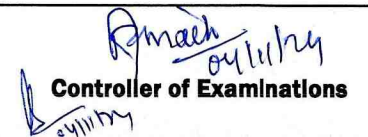 04/11/24
Controller of Examinations
04/11/24